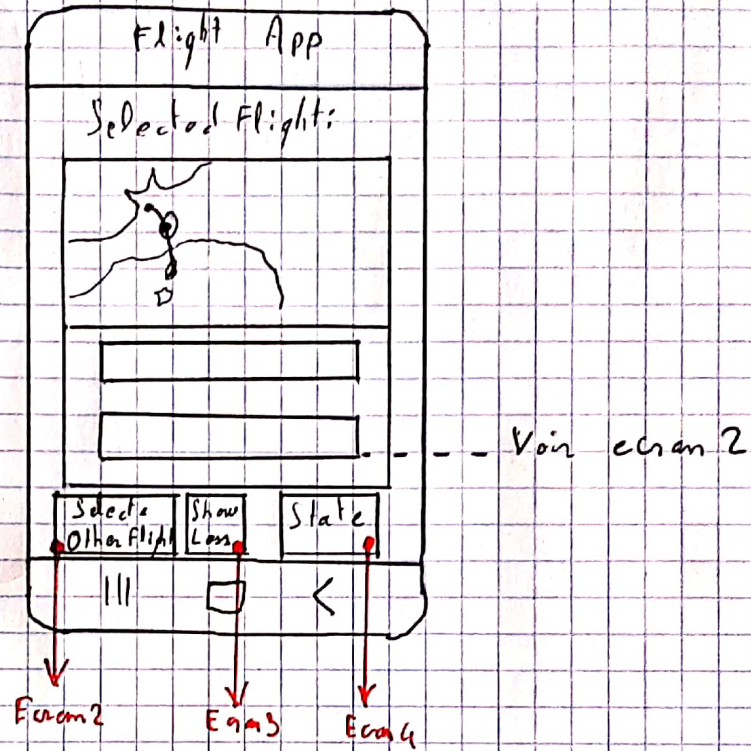 Flight App
Selected Flight:
Voir ecran 2
Select
Other Flight
Show
State
Ecran 2
Ecran 3
Ecran 4